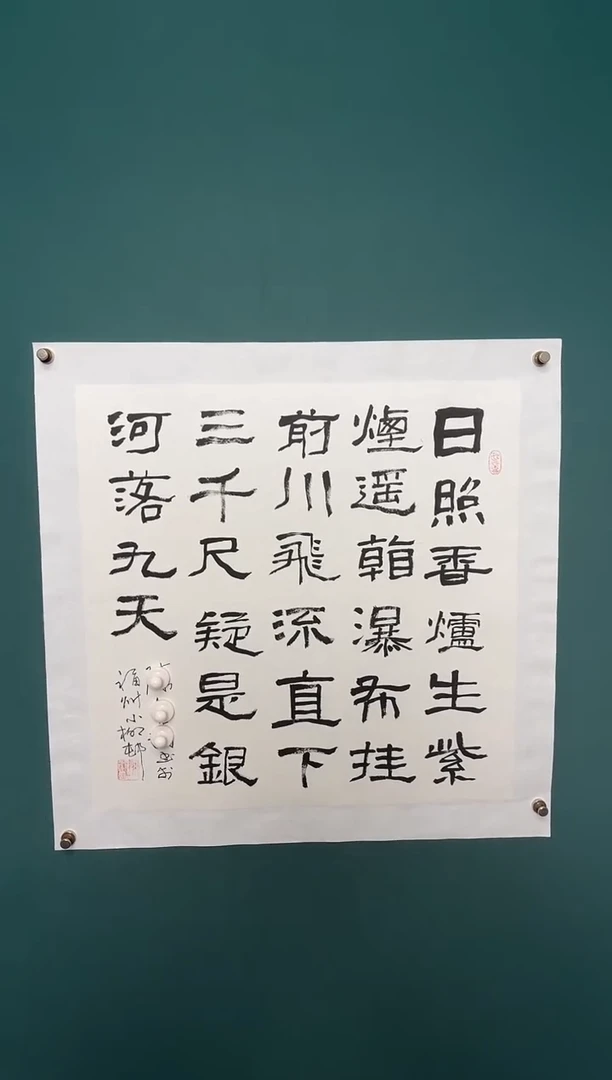 日照香爐生紫
煙遥看瀑布挂
前川飛流直下
三千尺疑是銀
河落九天
书于
福州小柳邨